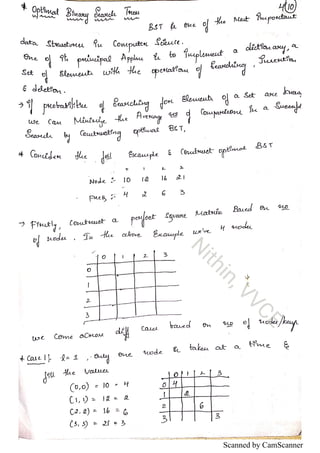 * Optimal Binary Search Tree
4(10)
BST is one of the Most Important
data Structures in Computer Science.
One of its principal Appln is to implement a dictionary, a
Set of Elements with the operation of Searching, Insertion
& deletion.
→ If probabilities of Searching for Elements of a Set are known
we can Minimize the Average no of Comparisons in a Successful
Search by Constructing optimal BST.
* Consider the foll Example & Construct optimal BST
0 1 2 3
Node :- 10 12 16 21
:- 4 2 6 3
→ Firstly, Construct a perfect Square Matrix Based on no
of nodes. In the above Example we've 4 nodes
0 1 2 3
0
1
2
3
we come across diff cases based on no of nodes/keys.
* Case 1]. l=1, Only one node is taken at a time &
foll the values
(0,0) = 10 = 4
(1,1) = 12 = 2
(2,2) = 16 = 6
(3,3) = 21 = 3
0 1 2 3
0 4
1 2
2 6
3 3
Nithin, VVCE
Scanned by CamScanner